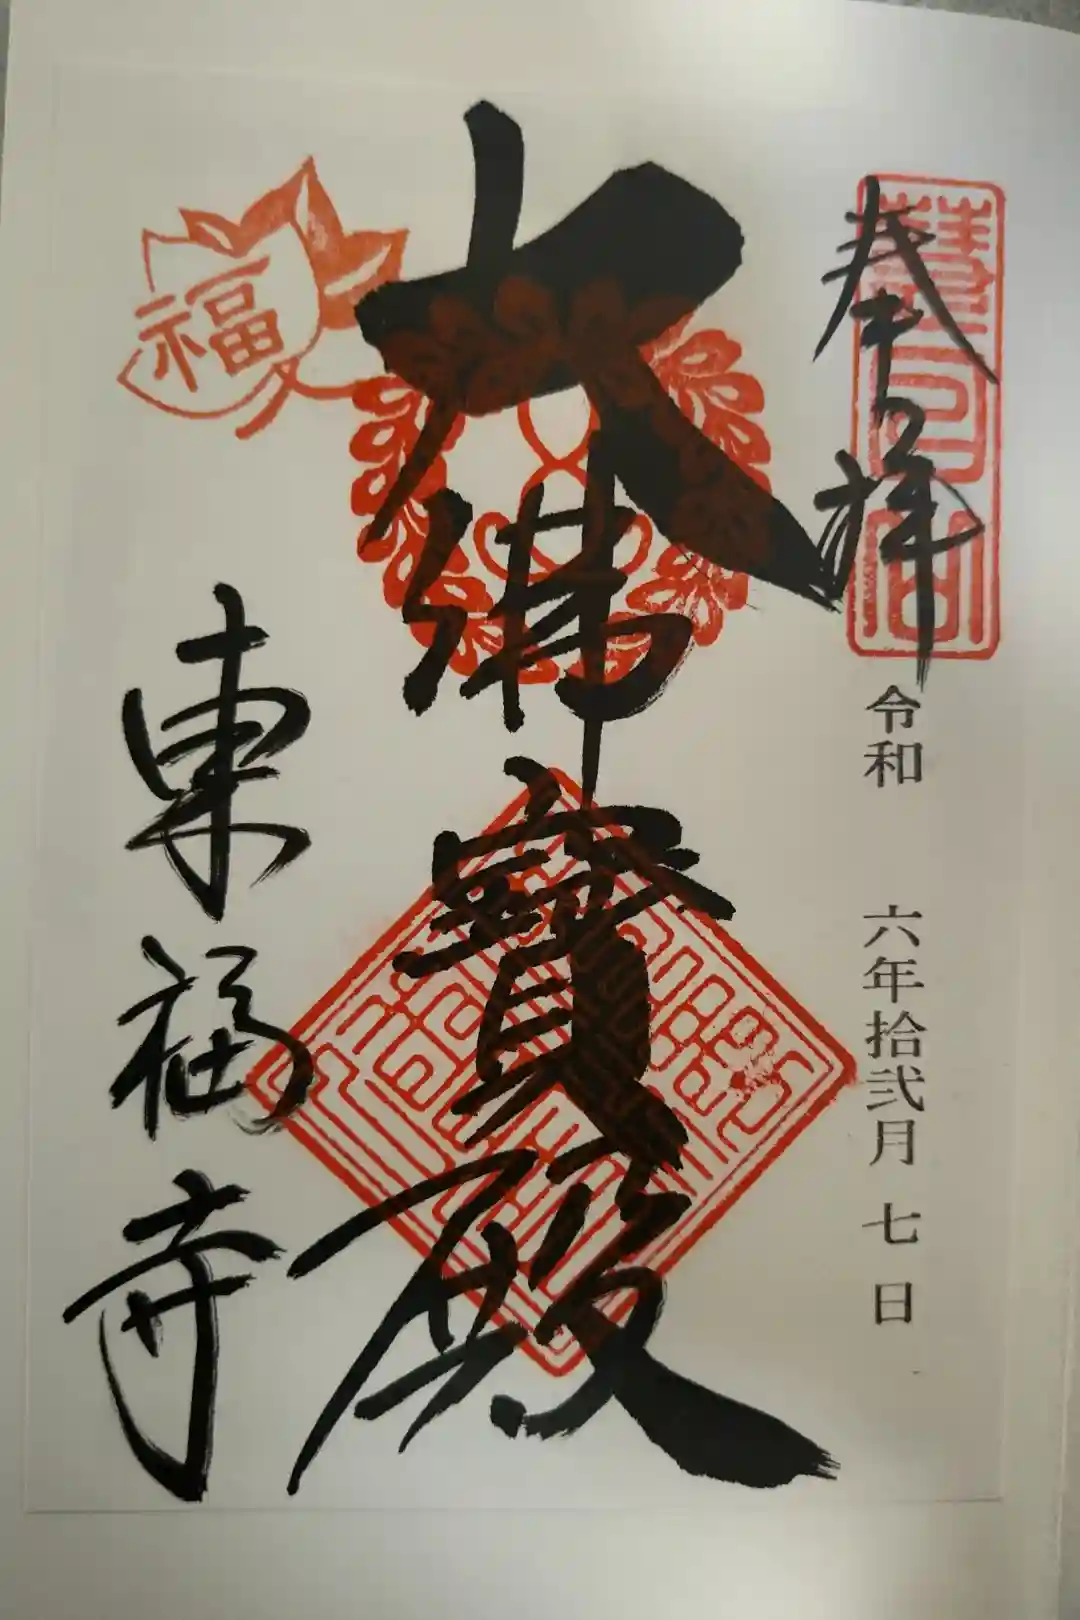 奉拝
令和 六年拾弐月 七日
大佛寶殿
東福寺
福